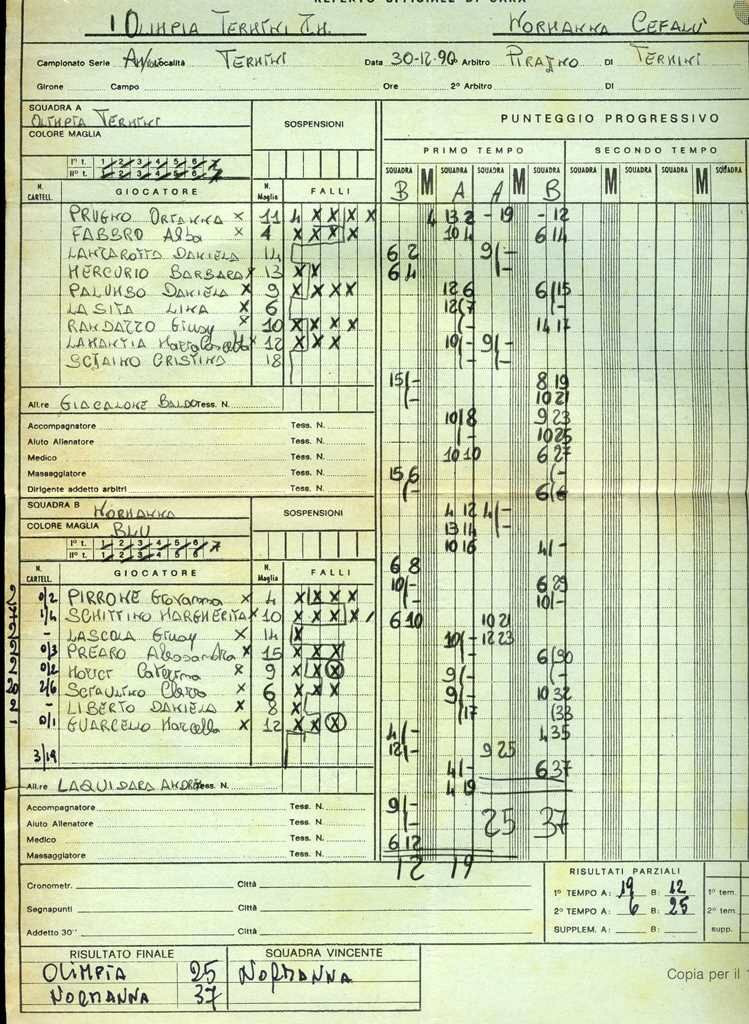 REFERTO UFFICIALE DI GARA
1 OLIMPIA TERMINI IM. NORMANNA CEFALÙ
Campionato Serie Località TERMINI Data 30-12-90 1º Arbitro DI TERMINI
Girone Campo Ore 2º Arbitro DI
SQUADRA A
OLIMPIA TERMINI
COLORE MAGLIA
SOSPENSIONI
PUNTEGGIO PROGRESSIVO
PRIMO TEMPO SECONDO TEMPO
Iº t. 1 2 3 4 5 6 7
IIº t. 1 2 3 4 5 6 7
SQUADRA M SQUADRA SQUADRA M SQUADRA SQUADRA M SQUADRA SQUADRA M SQUADRA
B A A B
N. CARTELL. GIOCATORE N. Maglia FALLI
PRUGNO ORIANNA x 11 4 x x x x
FABBRO Alba x 4 x x x x
LANZAROTTA DANIELA 14
MERCURIO BARBARA x 13 x x
PALUMBO DANIELA x 9 x x x x
LA SITA LINA x 6
RANDAZZO Giusy x 10 x x x x
LAMANTIA x 12 x x x
SCIAINO CRISTINA 18
4 13 2 - 19 - 12
10 4 6 14
6 2 9 -
6 4 -
12 6 6 15
12 7 -
- 14 17
10 - 9 -
- -
15 - 8 19
- 10 21
10 8 9 23
- 10 25
10 10 6 27
15 6 -
- 6
4 12 4 -
13 14 -
10 16 4 -
6 8
10 - 6 29
- 10 -
6 10 10 21
10 - 12 23
- 6 30
9 - -
9 - 10 32
17 33
4 - 4 35
12 - 9 25
4 - 6 37
4 19
9 -
- 25 37
6 12
12 19
All.re GIACALONE BALDO Tess. N.
Accompagnatore Tess. N.
Aiuto Allenatore Tess. N.
Medico Tess. N.
Massaggiatore Tess. N.
Dirigente addetto arbitri Tess. N.
SQUADRA B NORMANNA
COLORE MAGLIA BLU
SOSPENSIONI
Iº t. 1 2 3 4 5 6 7
IIº t. 1 2 3 4 5 6 7
N. CARTELL. GIOCATORE N. Maglia FALLI
0/2 PIRRONE Giovanna x 4 x x x x
1/4 SCHITTINO MARGHERITA x 10 x x x x
- LASCOLA Giusy x 14 x
0/3 PREARO Alessandra x 15 x x x
0/2 Caterina x 9 x x x
2/6 SCIAULINO Clara x 6 x x x
- LIBERTO DANIELA x 8 x
0/1 GUARCELLO Marcella x 12 x x x
3/19
All.re LAQUIDARA ANDREA Tess. N.
Accompagnatore Tess. N.
Aiuto Allenatore Tess. N.
Medico Tess. N.
Massaggiatore Tess. N.
Cronometr. Città
Segnapunti Città
Addetto 30" Città
RISULTATI PARZIALI
1º TEMPO A: 19 B: 12 1º tem.
2º TEMPO A: 6 B: 25 2º tem.
SUPPLEM. A: B: supp.
RISULTATO FINALE SQUADRA VINCENTE
OLIMPIA 25 NORMANNA
NORMANNA 37
Copia per il